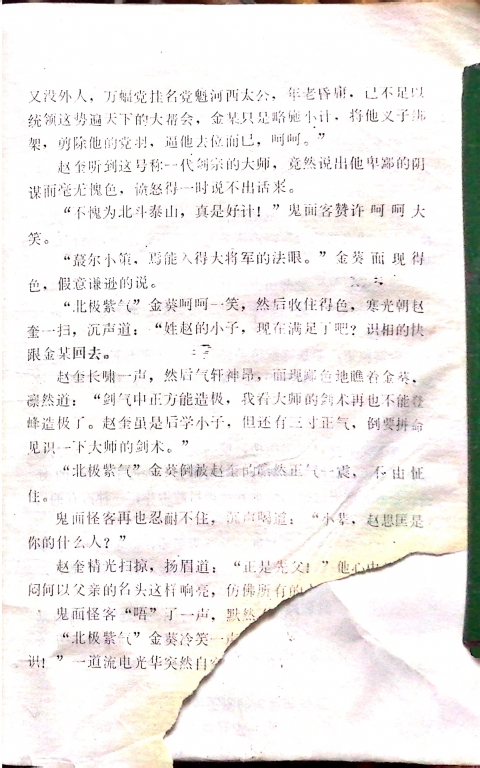 又没外人，万蝠党挂名党魁河西太公，年老昏庸，已不足以
统领这势遍天下的大帮会，金某只是略施小计，将他义子绑
架，剪除他的党羽，逼他去位而已，呵呵。”
赵奎听到这号称一代剑宗的大师，竟然说出他卑鄙的阴
谋而毫无愧色，愤怒得一时说不出话来。
“不愧为北斗泰山，真是好计！”鬼面客赞许呵呵大
笑。
“蕞尔小策，焉能入得大将军的法眼。”金葵面现得
色，假意谦逊的说。
“北极紫气”金葵呵呵一笑，然后收住得色，寒光朝赵
奎一扫，沉声道：“姓赵的小子，现在满足了吧？识相的快
跟金某回去。
赵奎长啸一声，然后气轩神昂，面现鄙色地瞧着金葵，
凛然道：“剑气中正方能造极，我看大师的剑术再也不能登
峰造极了。赵奎虽是后学小子，但还有三寸正气，倒要拼命
见识一下大师的剑术。”
“北极紫气”金葵倒被赵奎的凛然正气一震，不由怔
住。
鬼面怪客再也忍耐不住，沉声喝道：“小辈，赵思匡是
你的什么人？”
赵奎精光扫掠，扬眉道：“正是先父！”他心中
闷何以父亲的名头这样响亮，仿佛所有的
鬼面怪客“唔”了一声，默然
“北极紫气”金葵冷笑一声
识！”一道流电光华突然自